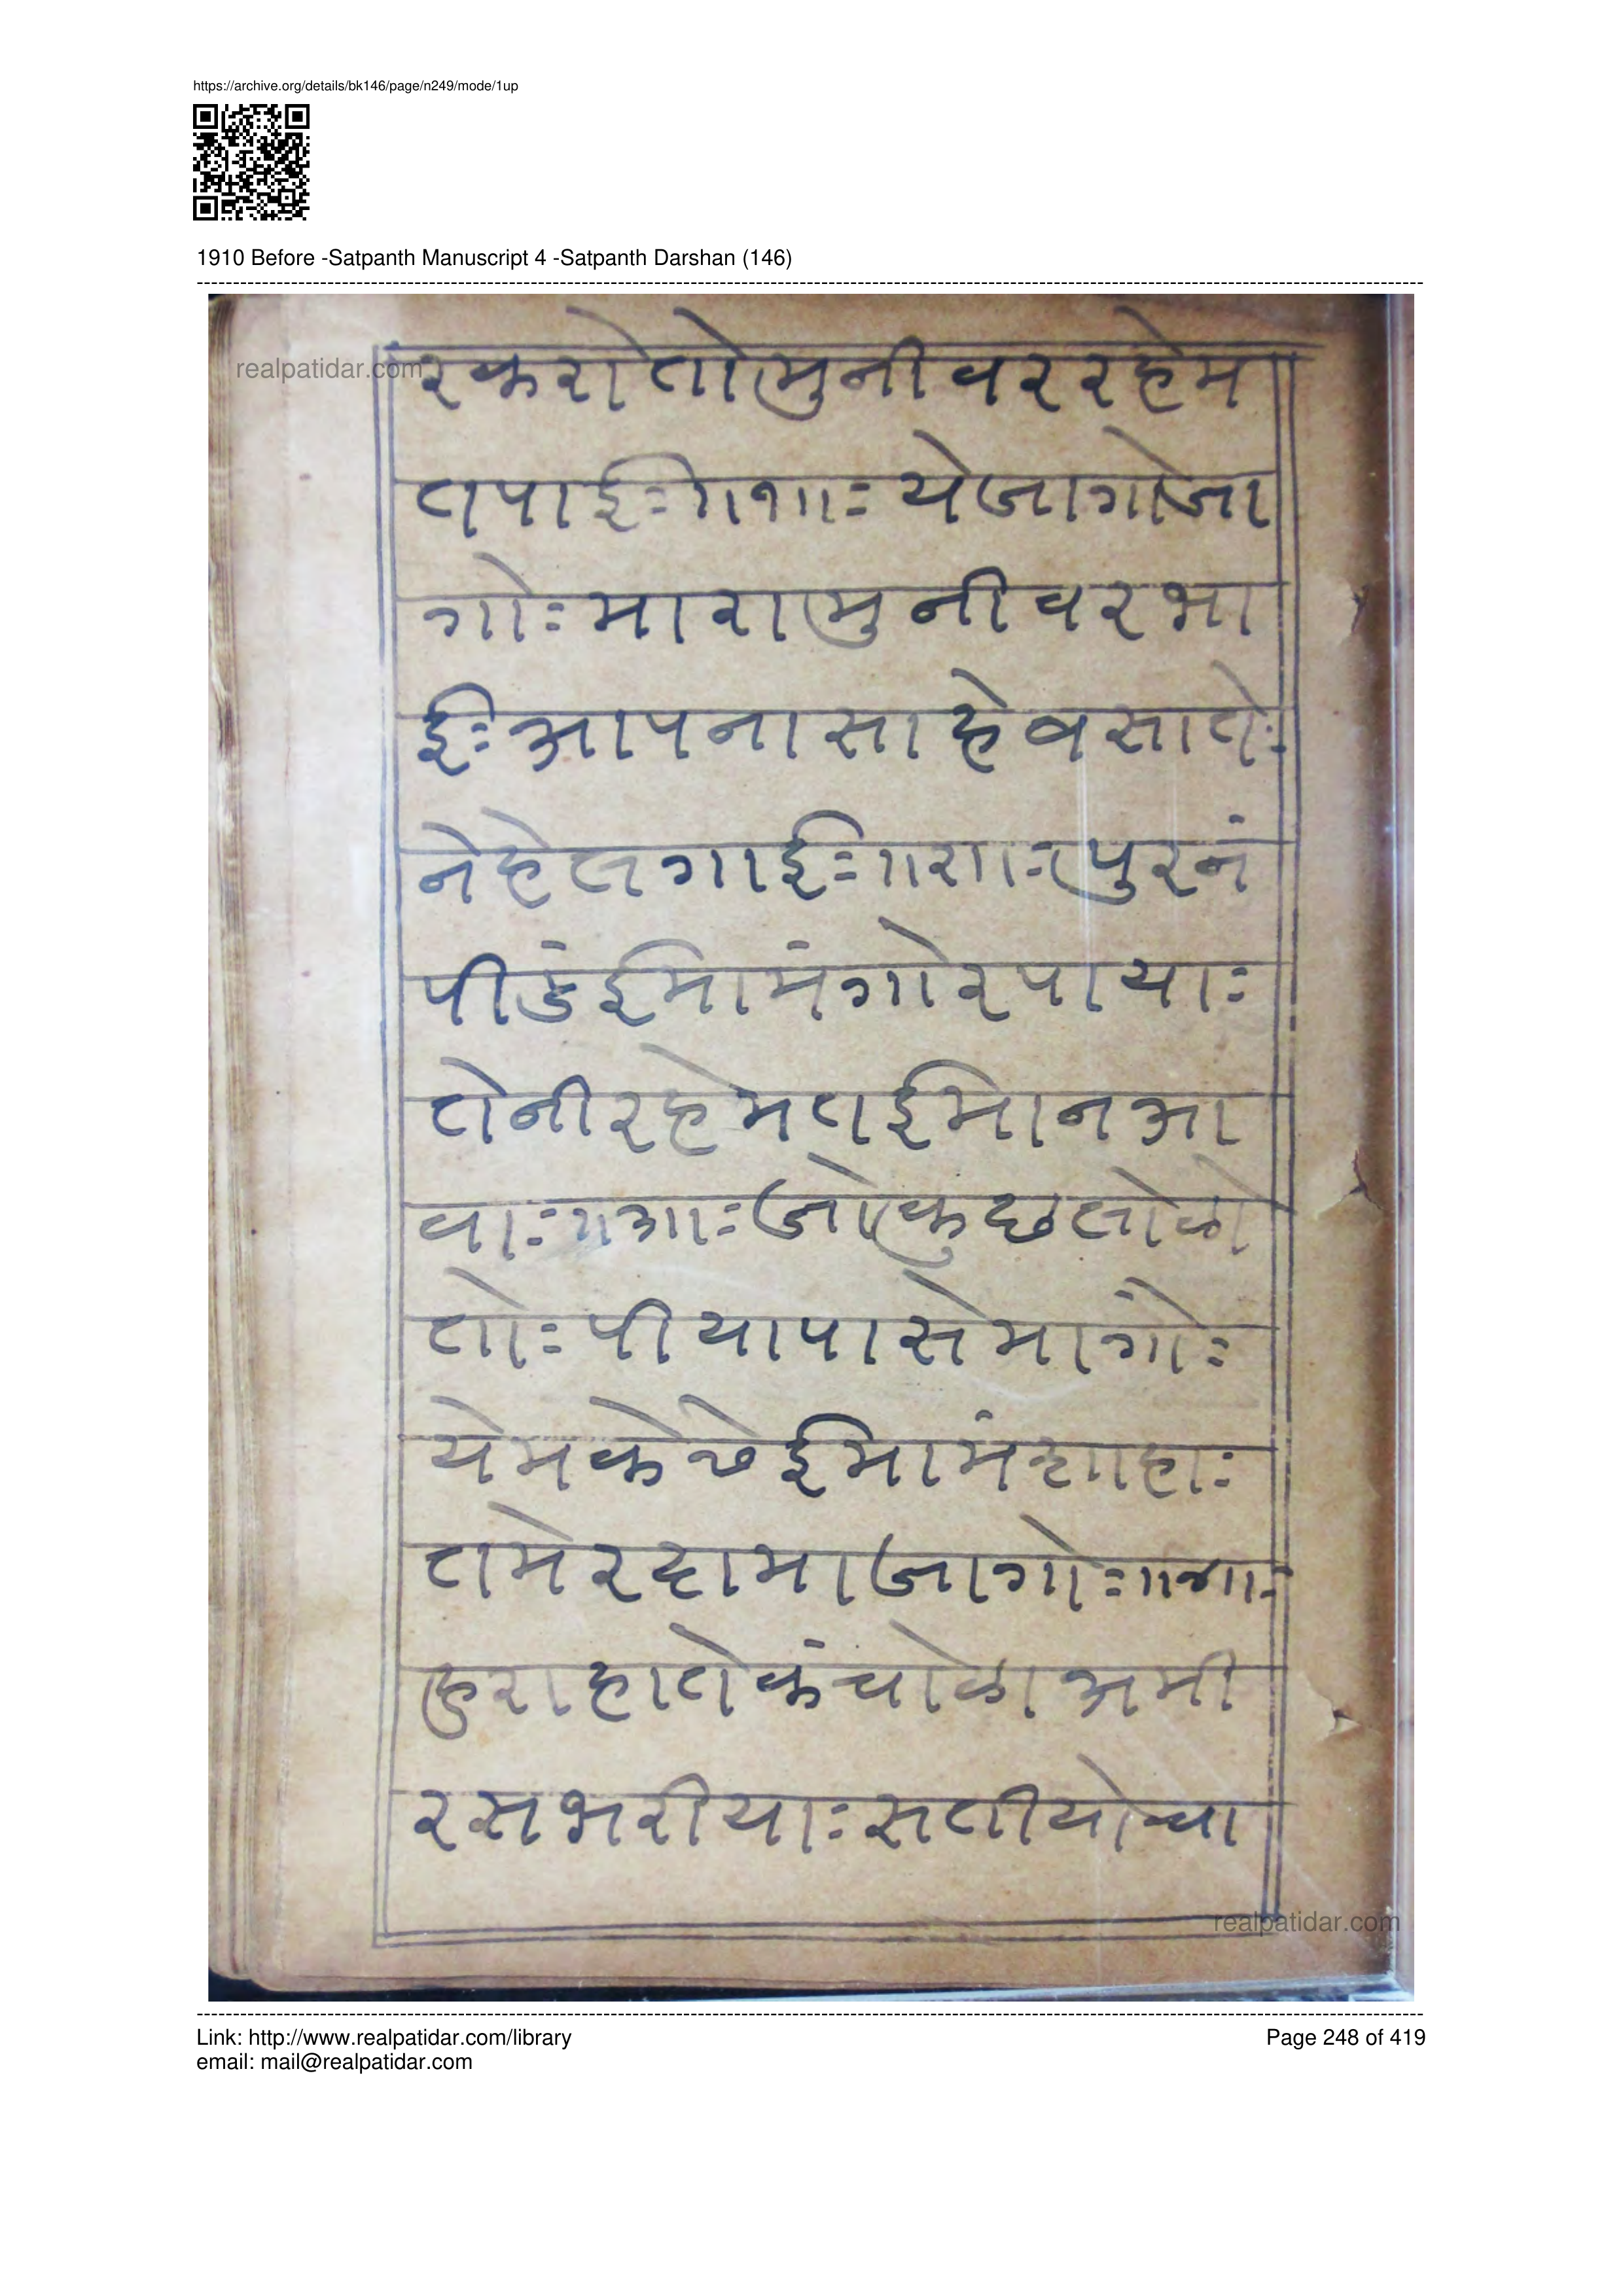 https://archive.org/details/bk146/page/n249/mode/1up
1910 Before -Satpanth Manuscript 4 -Satpanth Darshan (146)
realpatidar.com
रकरोतो मुनीवर रहेम
तपाईः ॥१॥ः येजागोजा
गोः मारा मुनीवर भा
ईः आपना साहेब सातेः
नेहे लगाईः ॥२॥ः पुरनं
पीडं ईमामं गोर पायाः
तेनी रहेमत ईमान आ
वाः ॥३॥ः जो कुछ लोळो
तोः पीया पासे मांगोः
येम के छे ईमामं शाहाः
तमे रदामा जागोः ॥४॥ः
हुरा हाते कंचोळा अमी
रस भरीयाः सतीयो चा
realpatidar.com
Link: http://www.realpatidar.com/library
Page 248 of 419
email: mail@realpatidar.com